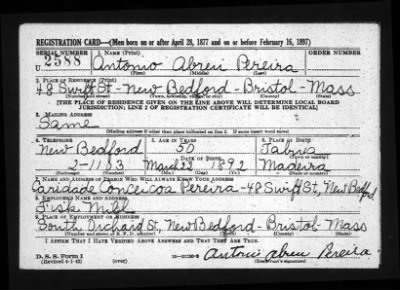 REGISTRATION CARD—(Men born on or after April 28, 1877 and on or before February 16, 1897)
SERIAL NUMBER 1. NAME (Print) ORDER NUMBER
U 2588 Antonio Abreu Pereira
(First) (Middle) (Last)
2. PLACE OF RESIDENCE (Print)
48 Swift St - New Bedford - Bristol - Mass
(Number and street) (Town, township, village, or city) (County) (State)
[THE PLACE OF RESIDENCE GIVEN ON THE LINE ABOVE WILL DETERMINE LOCAL BOARD
JURISDICTION; LINE 2 OF REGISTRATION CERTIFICATE WILL BE IDENTICAL]
3. MAILING ADDRESS
Same
[Mailing address if other than place indicated on line 2. If same insert word same]
4. TELEPHONE 5. AGE IN YEARS 6. PLACE OF BIRTH
New Bedford 50 Tabua
DATE OF BIRTH (Town or county)
2-1183 March 22 1892 Madeira
(Exchange) (Number) (Mo.) (Day) (Yr.) (State or country)
7. NAME AND ADDRESS OF PERSON WHO WILL ALWAYS KNOW YOUR ADDRESS
Caridade Conceicoa Pereira - 48 Swift St, New Bedford
8. EMPLOYER'S NAME AND ADDRESS
Fisk Mill
9. PLACE OF EMPLOYMENT OR BUSINESS
South Orchard St, New Bedford - Bristol - Mass
(Number and street or R. F. D. number) (Town) (County) (State)
I AFFIRM THAT I HAVE VERIFIED ABOVE ANSWERS AND THAT THEY ARE TRUE.
D. S. S. Form 1 Antonio Abreu Pereira
(Revised 4-1-42) (over) (Registrant's signature)